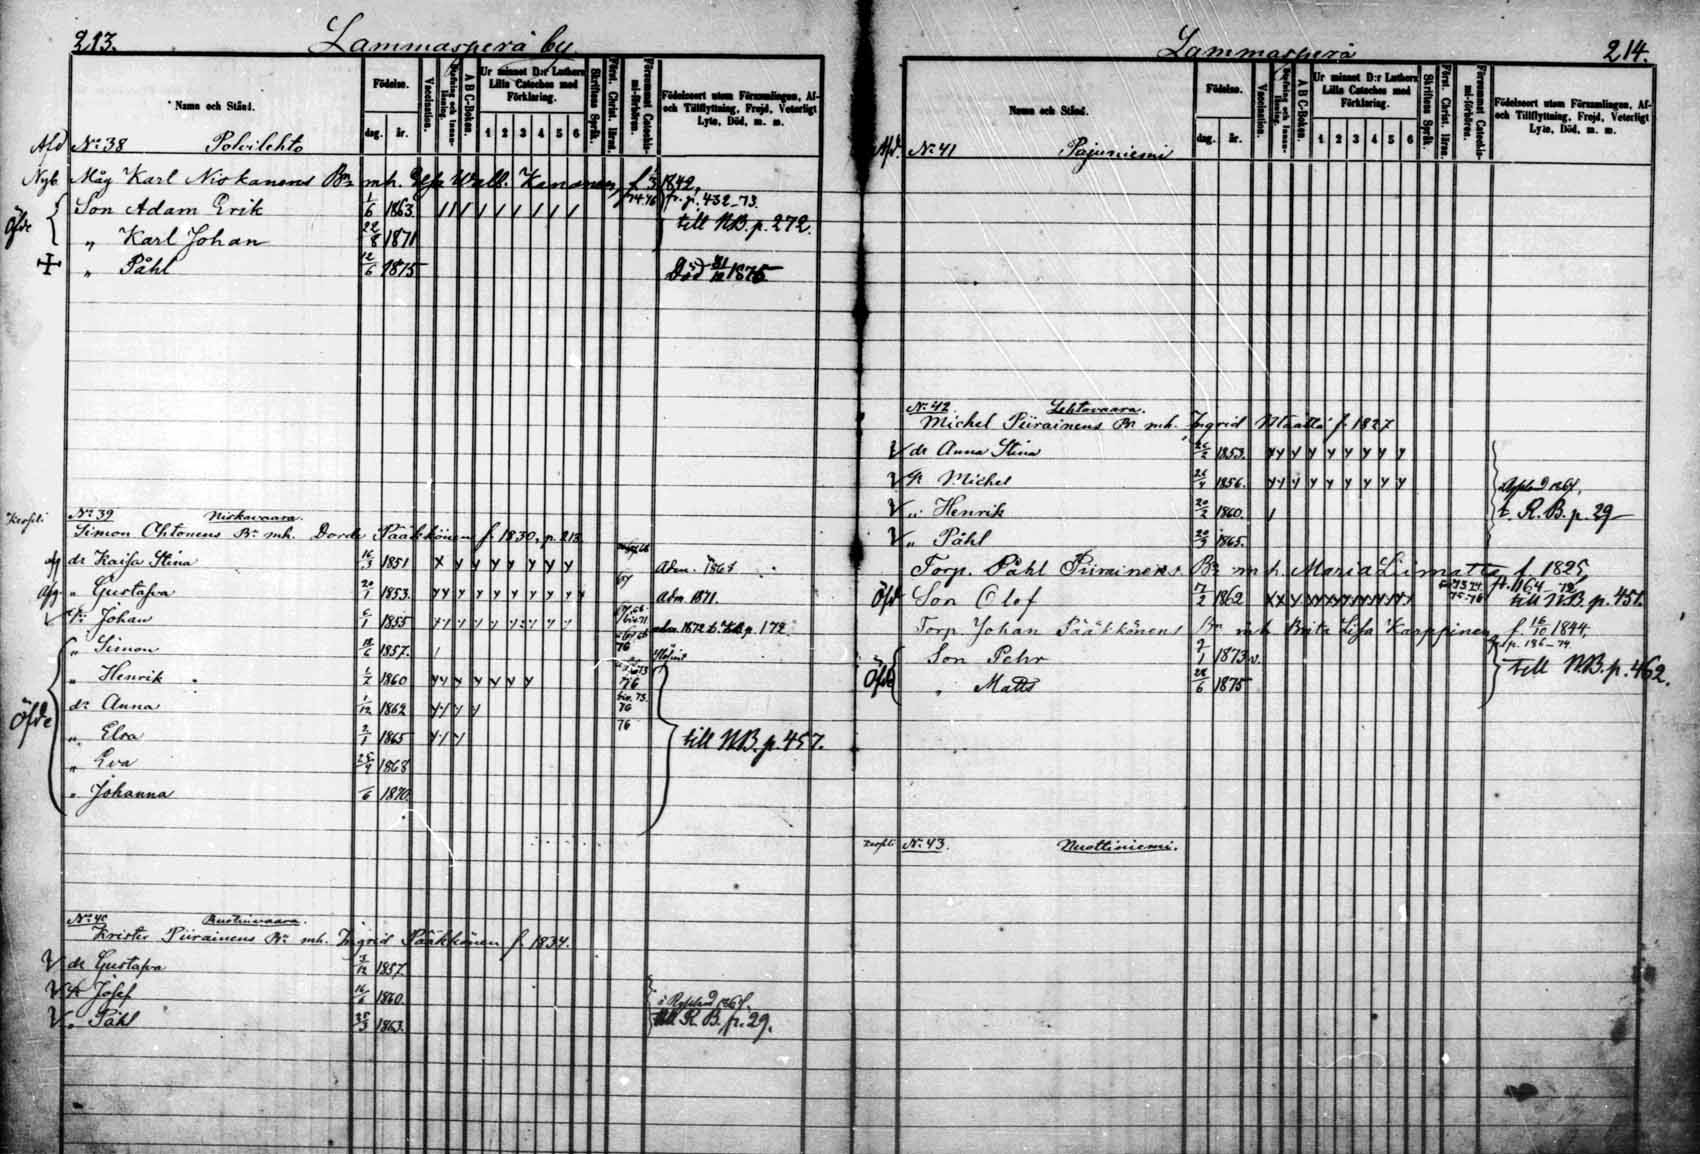 213. Lammasperä by
Namn och Stånd.
Födelse.
dag. år.
Vaccination.
A B C-Boken.
Ur minnet D:r Luthers Lilla Cateches med Förklaring.
1 2 3 4 5 6
Skriftens Språk.
Först. Christ. läran.
Försummat Catechismi-förhören.
Födelseort utom Församlingen, Af- och Tillflyttning, Frejd, Veterligt Lyte, Död, m. m.
Afd No 38 Polvilehto
Nyb. Måg Karl Niskanens Br mh. Wallb. Kananen, f. 1842,
fr. p. 432-73.
Öfde Son Adam Erik 1/6 1863 till NB. p. 272.
" Karl Johan 22/8 1871
" Påhl 12/6 1875 Död 1875
No 39 Niskavaara.
Simon Ohtonens Br mh. Dordi Pääkkönen f. 1830, p. 213.
dr Kaisa Stina 16/3 1851 Adm. 1868
" Gustafva 20/1 1853. 67 Adm. 1871.
Johan 6/1 1855 Adm. 1872 p. 172.
" Simon 1857. 76
" Henrik 1860 76
Öfde dr Anna 1/12 1862 76
" Elsa 2/1 1865 76 till NB. p. 457.
" Eva 25/9 1868
" Johanna /6 1870.
No 40 Rustinvaara.
Krister Piirainens Br mh. Ingrid Pääkkönen f. 1834.
dr Gustafva 3/12 1857
Josef 16/6 1860. i Ryssland 1864.
" Påhl 25/3 1863. till R. B. p. 29.
Lammasperä 214.
Namn och Stånd.
Födelse.
dag. år.
Vaccination.
A B C-Boken.
Ur minnet D:r Luthers Lilla Cateches med Förklaring.
1 2 3 4 5 6
Skriftens Språk.
Först. Christ. läran.
Försummat Catechismi-förhören.
Födelseort utom Församlingen, Af- och Tillflyttning, Frejd, Veterligt Lyte, Död, m. m.
Afd. No 41 Pajuniemi
No 42. Lehtovaara.
Michel Piirainens Br mh. Ingrid Määttä f. 1827
dr Anna Stina 1853.
Michel 1856. Ryssland 1864,
" Henrik 20/2 1860. t. R. B. p. 29
" Påhl 20/3 1865.
Torp. Påhl Piirainens Br mh. Maria Limatta f. 1825,
Öfd Son Olof 17/2 1862 till NB. p. 457.
Torp. Johan Pääkkönens Br mh. Brita Lisa Karppinen, f. 16/10 1844,
p. 186-74.
Öfde Son Pehr 7/1 1873 v. till NB. p. 462.
" Matts 28/6 1875
No 43. Nuottiniemi.